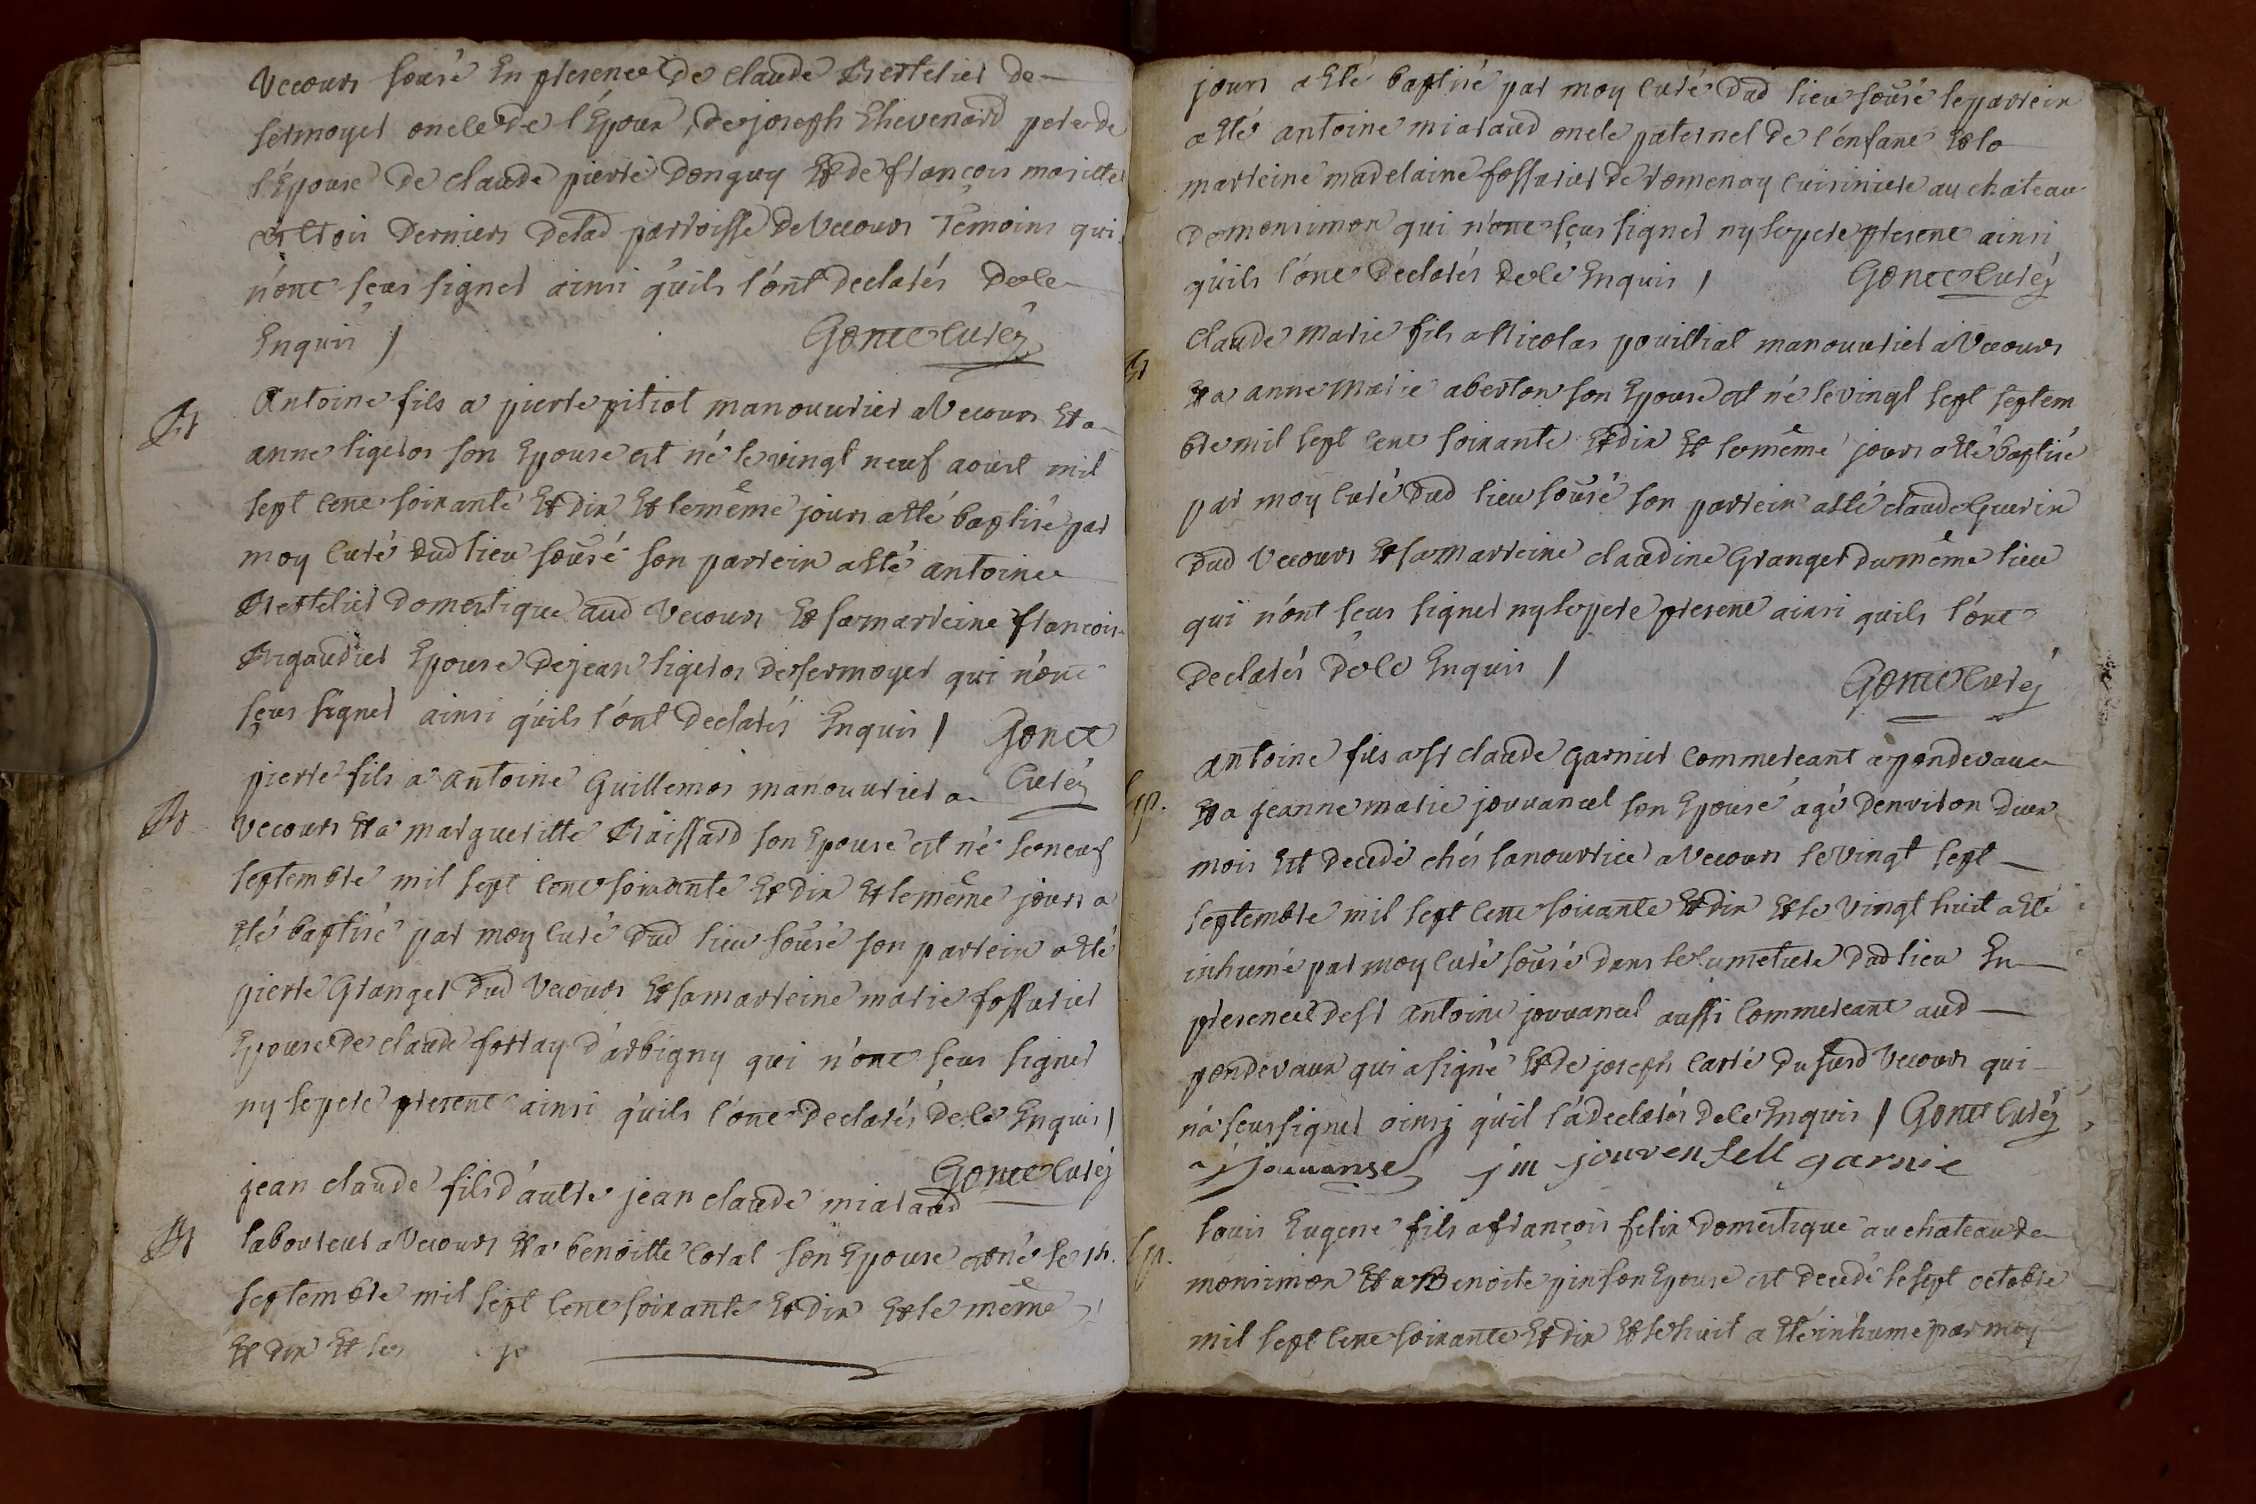 Vecours sousé En presence de claude Bertelier de
sermoyer oncle de l'Epoux, de joseph Thevenard pere de
l'Epouse de claude pierre Donguy Et de françois moritte
Les trois derniers delad parroisse de Vecours Temoins qui
n'ont sçus signer ainsi quils l'ont declarés de le
Enquis / Gonet curéz
Bt
Antoine fils a pierre pitiot manouvrier a Vecours Et a
anne ligeros son Epouse est né le vingt neuf aoust mil
sept cent soixante Et dix Et le même jours a Eté baptisé par
moy Curé dud lieu sousé son parrein a Eté antoine
Bertelier domestique aud Vecours Et sa marreine françoise
Brigaudier Epouse de jean ligeros de sermoyer qui n'ont
sçus signer ainsi quils l'ont declarés Enquis / Gonet
Curéz
Bt
pierre fils a antoine Guillemos manouvrier a
vecours Et a margueritte Braissard son Epouse est né le neuf
septembre mil sept cent soixante Et dix Et le même jours a
Eté baptisé par moy curé dud lieu sousé son parrein a Eté
pierre Granger dud Vecours Et sa marreine marie fossurier
Epouse de claude forray d'arbigny qui n'ont sçus signer
ny le pere present ainsi quils l'ont declarés de le Enquis /
Gonet Curéz
Bt
jean claude fils d'autre jean claude miaraud
laboureur a Vecours Et a benoitte Coral son Epouse est né le 14.
septembre mil sept cent soixante Et dix Et le même
Et dix Et le
jours a Eté baptisé par moy Curé dud lieu sousé le parrein
a Eté antoine miaraud oncle paternel de l'enfant Et la
marreine madelaine fossurier de romenay cuisiniere au chateau
de monsimon qui n'ont sçus signer ny le pere present ainsi
quils l'ont declarés de le Enquis / Gonet Curéz
Bt
Claude Marie fils a Nicolas pouillat manouvrier a Vecours
Et a anne Marie aberton son Epouse est né le vingt sept septem
bre mil sept cent soixante Et dix Et le même jours a Eté baptisé
par moy curé dud lieu sousé son parrein a Eté claude Guerin
dud Vecours Et sa Marreine claudine Granger du même lieu
qui n'ont sçus signer ny le pere present ainsi quils l'ont
declarés de le Enquis /
Gonet Curéz
Sp.
antoine fils a sr claude garnier Commerceant a pondevaux
Et a jeanne marie jouvancel son Epouse agé d'environ deux
mois Est decedé chés la nourrice a Vecours le vingt sept
septembre mil sept cent soixante Et dix Et le Vingt huit a Eté
inhumé par moy Curé sousé dans le cymetiere dud lieu En
presence de sr antoine jouvancel aussi Commerceant aud
pondevaux qui a signé Et de joseph Carré du susd Vecours qui
n'a sçus signer ainsi qu'il l'a declarés de le Enquis / Gonet Curéz
a jouvansel jm jouvensell garnie
Sp.
Louis Eugene fils a françois felix domestique au chateau de
monsimon Et a Benoite pin son Epouse est decedé le sept octobre
mil sept cent soixante Et dix Et le huit a Eté inhumé par moy